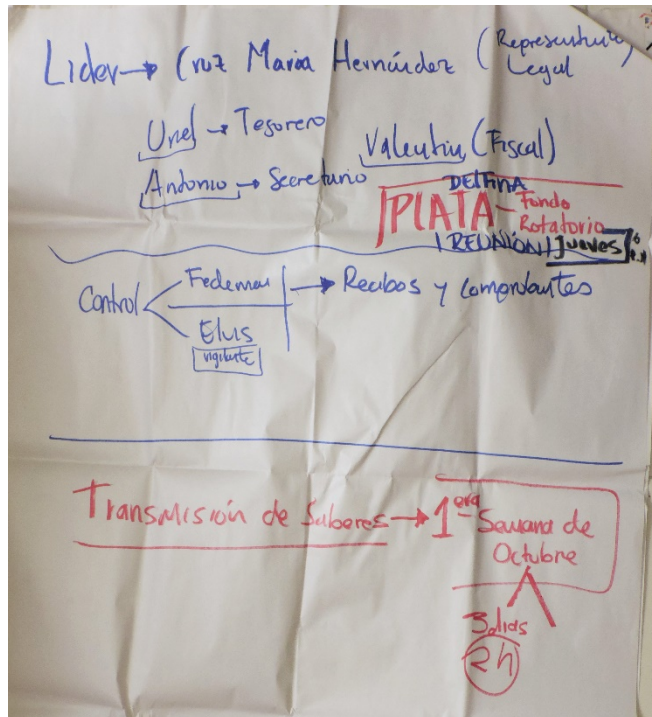 Lider → Cruz Maria Hernández (Representante Legal)
Uriel → Tesorero
Valentin (Fiscal)
Antonio → Secretario
DELFINA
PLATA - Fondo Rotatorio
REUNIÓN Jueves 6
Control
Fedemar
→ Recibos y comprobantes
Eluis
vigilante
Transmisión de Saberes → 1era Semana de
Octubre
3 dias
2h